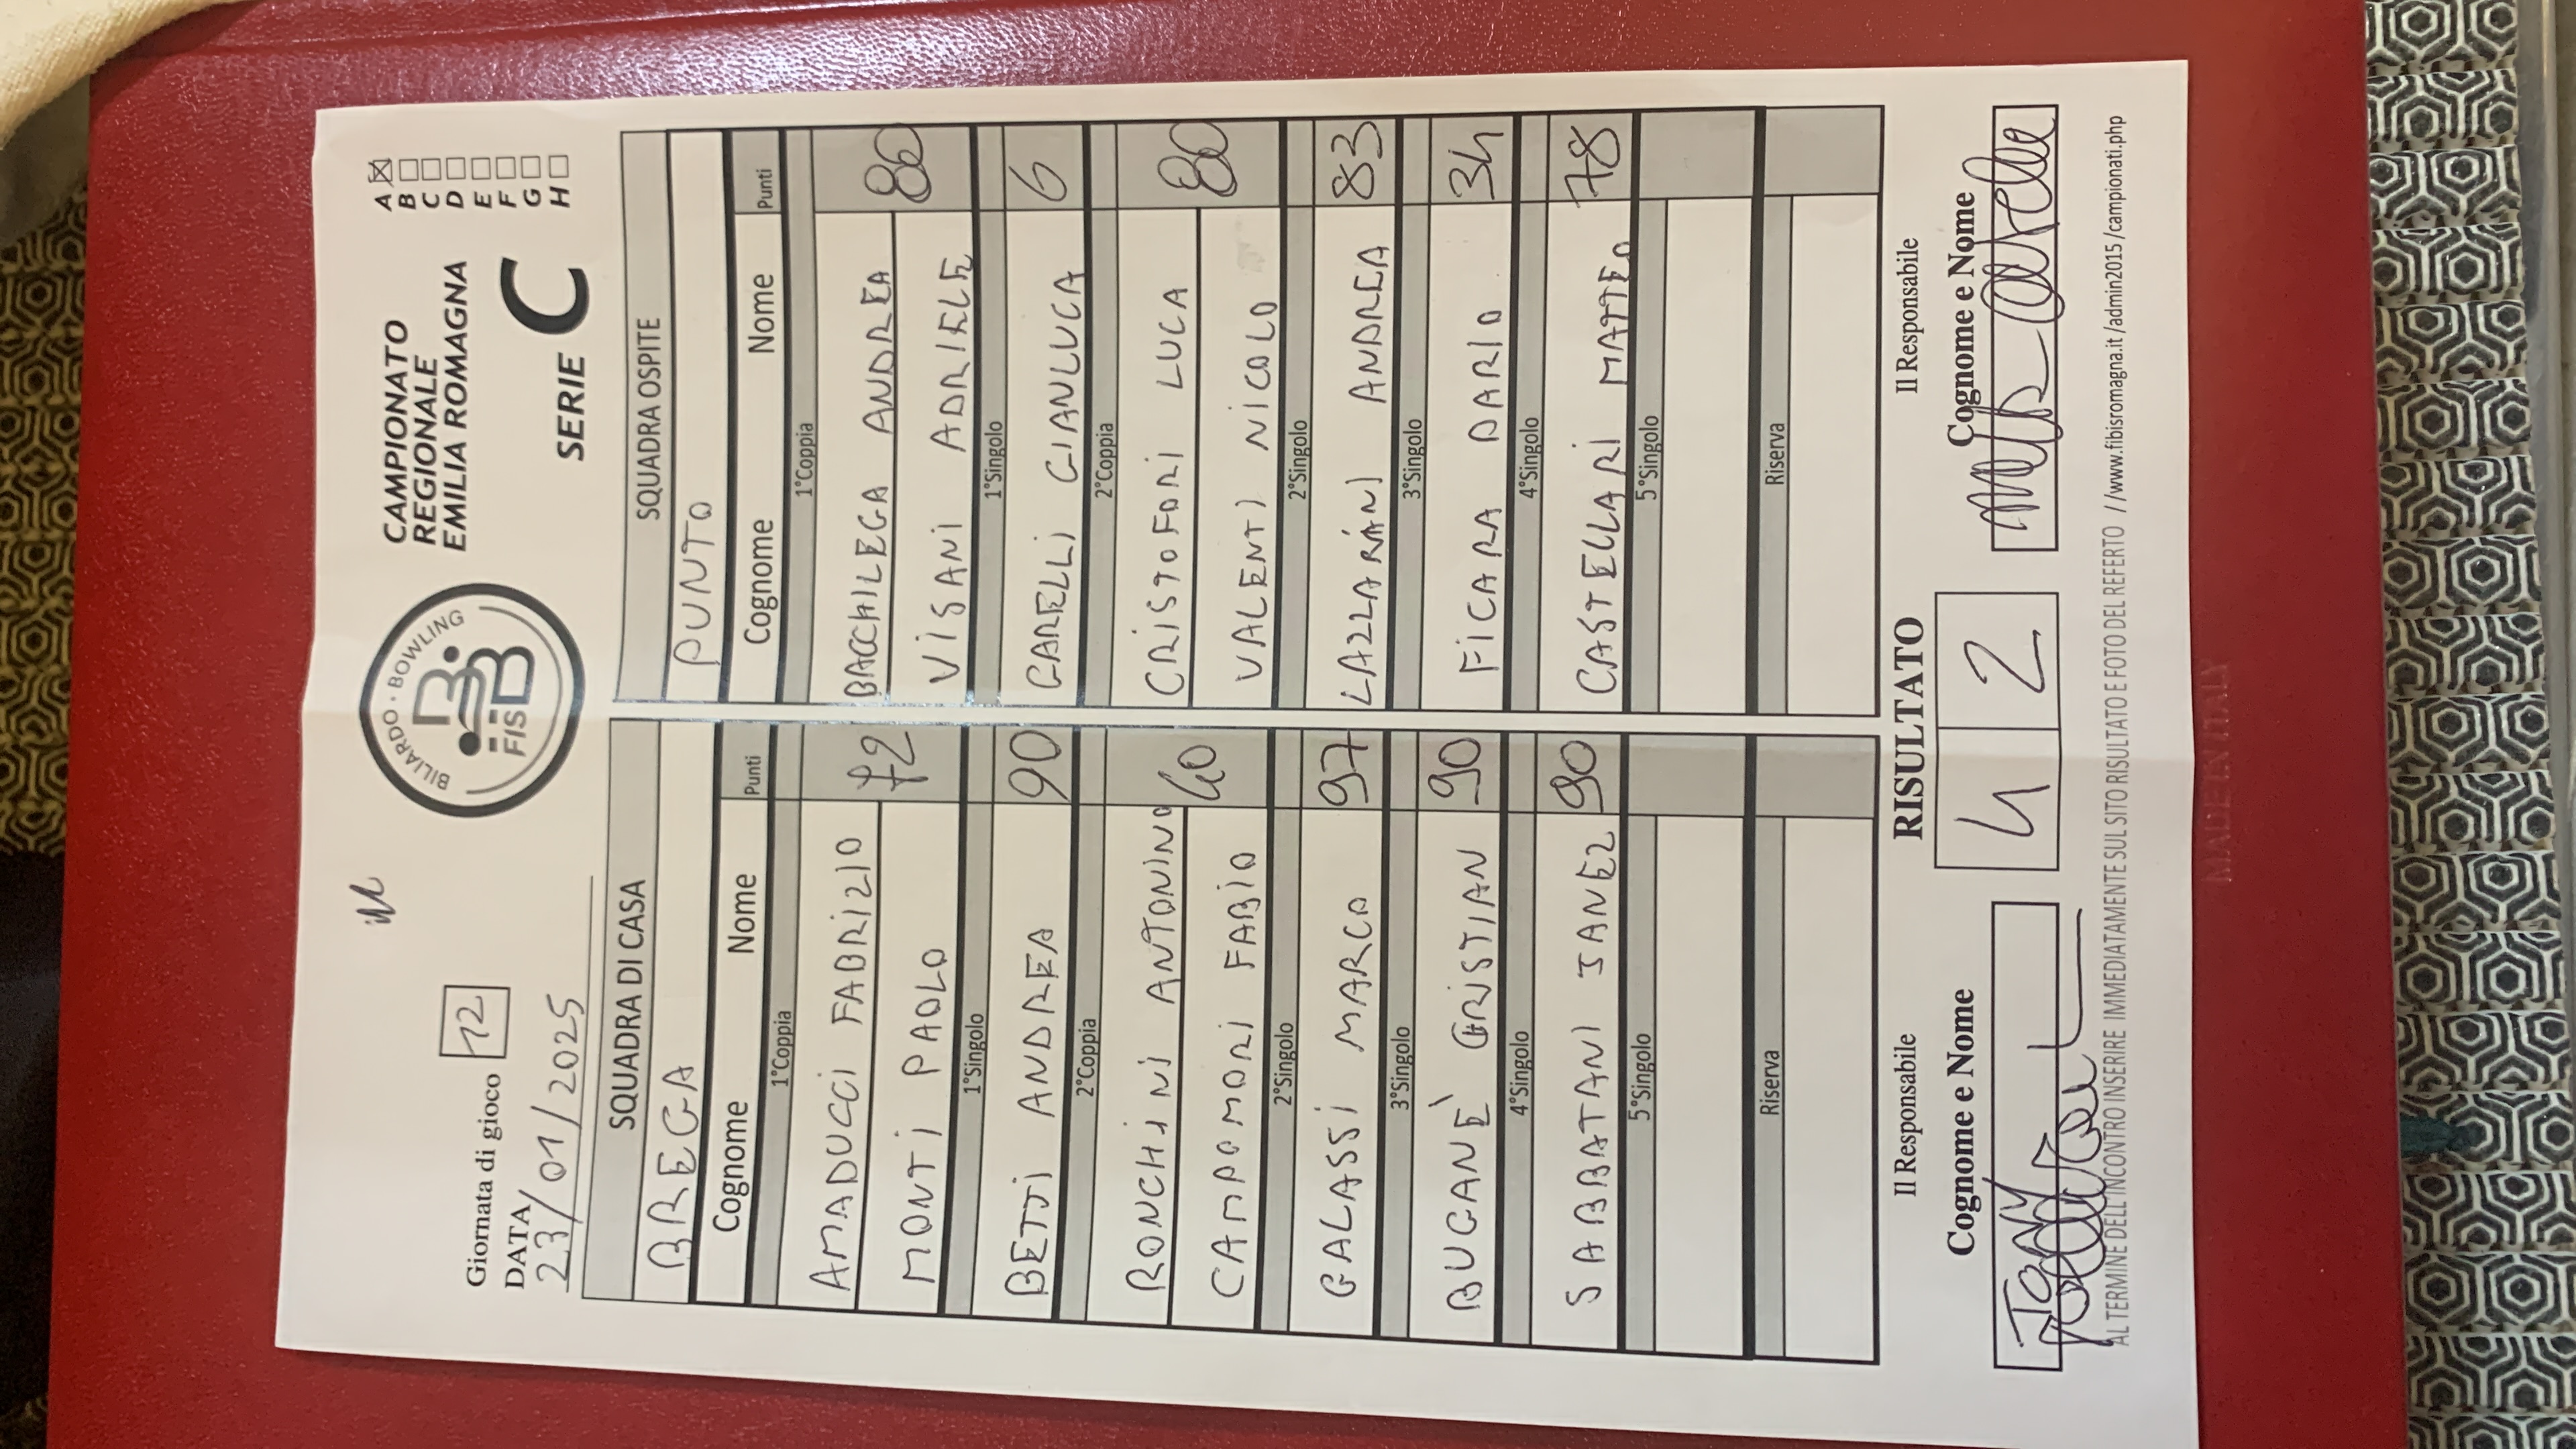 Giornata di gioco 12
DATA
23/01/2025
BILIARDO · BOWLING
FIS
CAMPIONATO
REGIONALE
EMILIA ROMAGNA
SERIE C
A
B
C
D
E
F
G
H
SQUADRA DI CASA
BREGA
Cognome Nome Punti
1°Coppia
AMADUCCI FABRIZIO 72
MONTI PAOLO
1°Singolo
BETTI ANDREA 90
2°Coppia
RONCHINI ANTONINO 60
CAMPOMORI FABIO
2°Singolo
GALASSI MARCO 97
3°Singolo
BUGANÈ CRISTIAN 90
4°Singolo
SABBATANI IANEZ 90
5°Singolo
Riserva
SQUADRA OSPITE
PUNTO
Cognome Nome Punti
1°Coppia
BACCHILEGA ANDREA 80
VISANI ADRIELE
1°Singolo
GARELLI GIANLUCA 6
2°Coppia
CRISTOFORI LUCA 80
VALENTI NICOLO
2°Singolo
LAZZARINI ANDREA 83
3°Singolo
FICARA DARIO 34
4°Singolo
CASTELLARI MATTEO 78
5°Singolo
Riserva
Il Responsabile
Cognome e Nome
RISULTATO
4 2
Il Responsabile
Cognome e Nome
AL TERMINE DELL'INCONTRO INSERIRE IMMEDIATAMENTE SUL SITO RISULTATO E FOTO DEL REFERTO //www.fibisromagna.it/admin2015/campionati.php
MADE IN ITALY